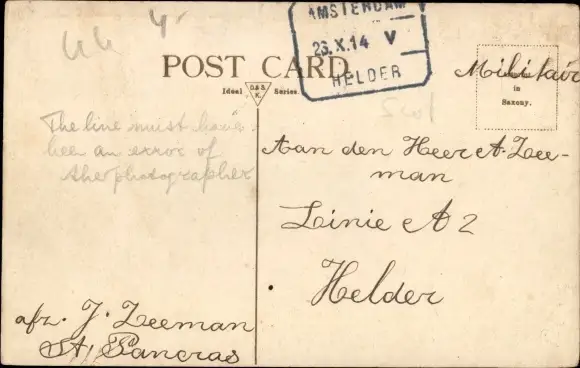 44 4.
AMSTERDAM
23.X.14 V
HELDER
POST CARD
Ideal D.&S. K. Series.
Militair
in
Saxony.
The line must have
been an error of
the photographer
Aan den Heer A. Zee-
man
Linie A 2
Helder
afz. J. Zeeman
St. Pancras